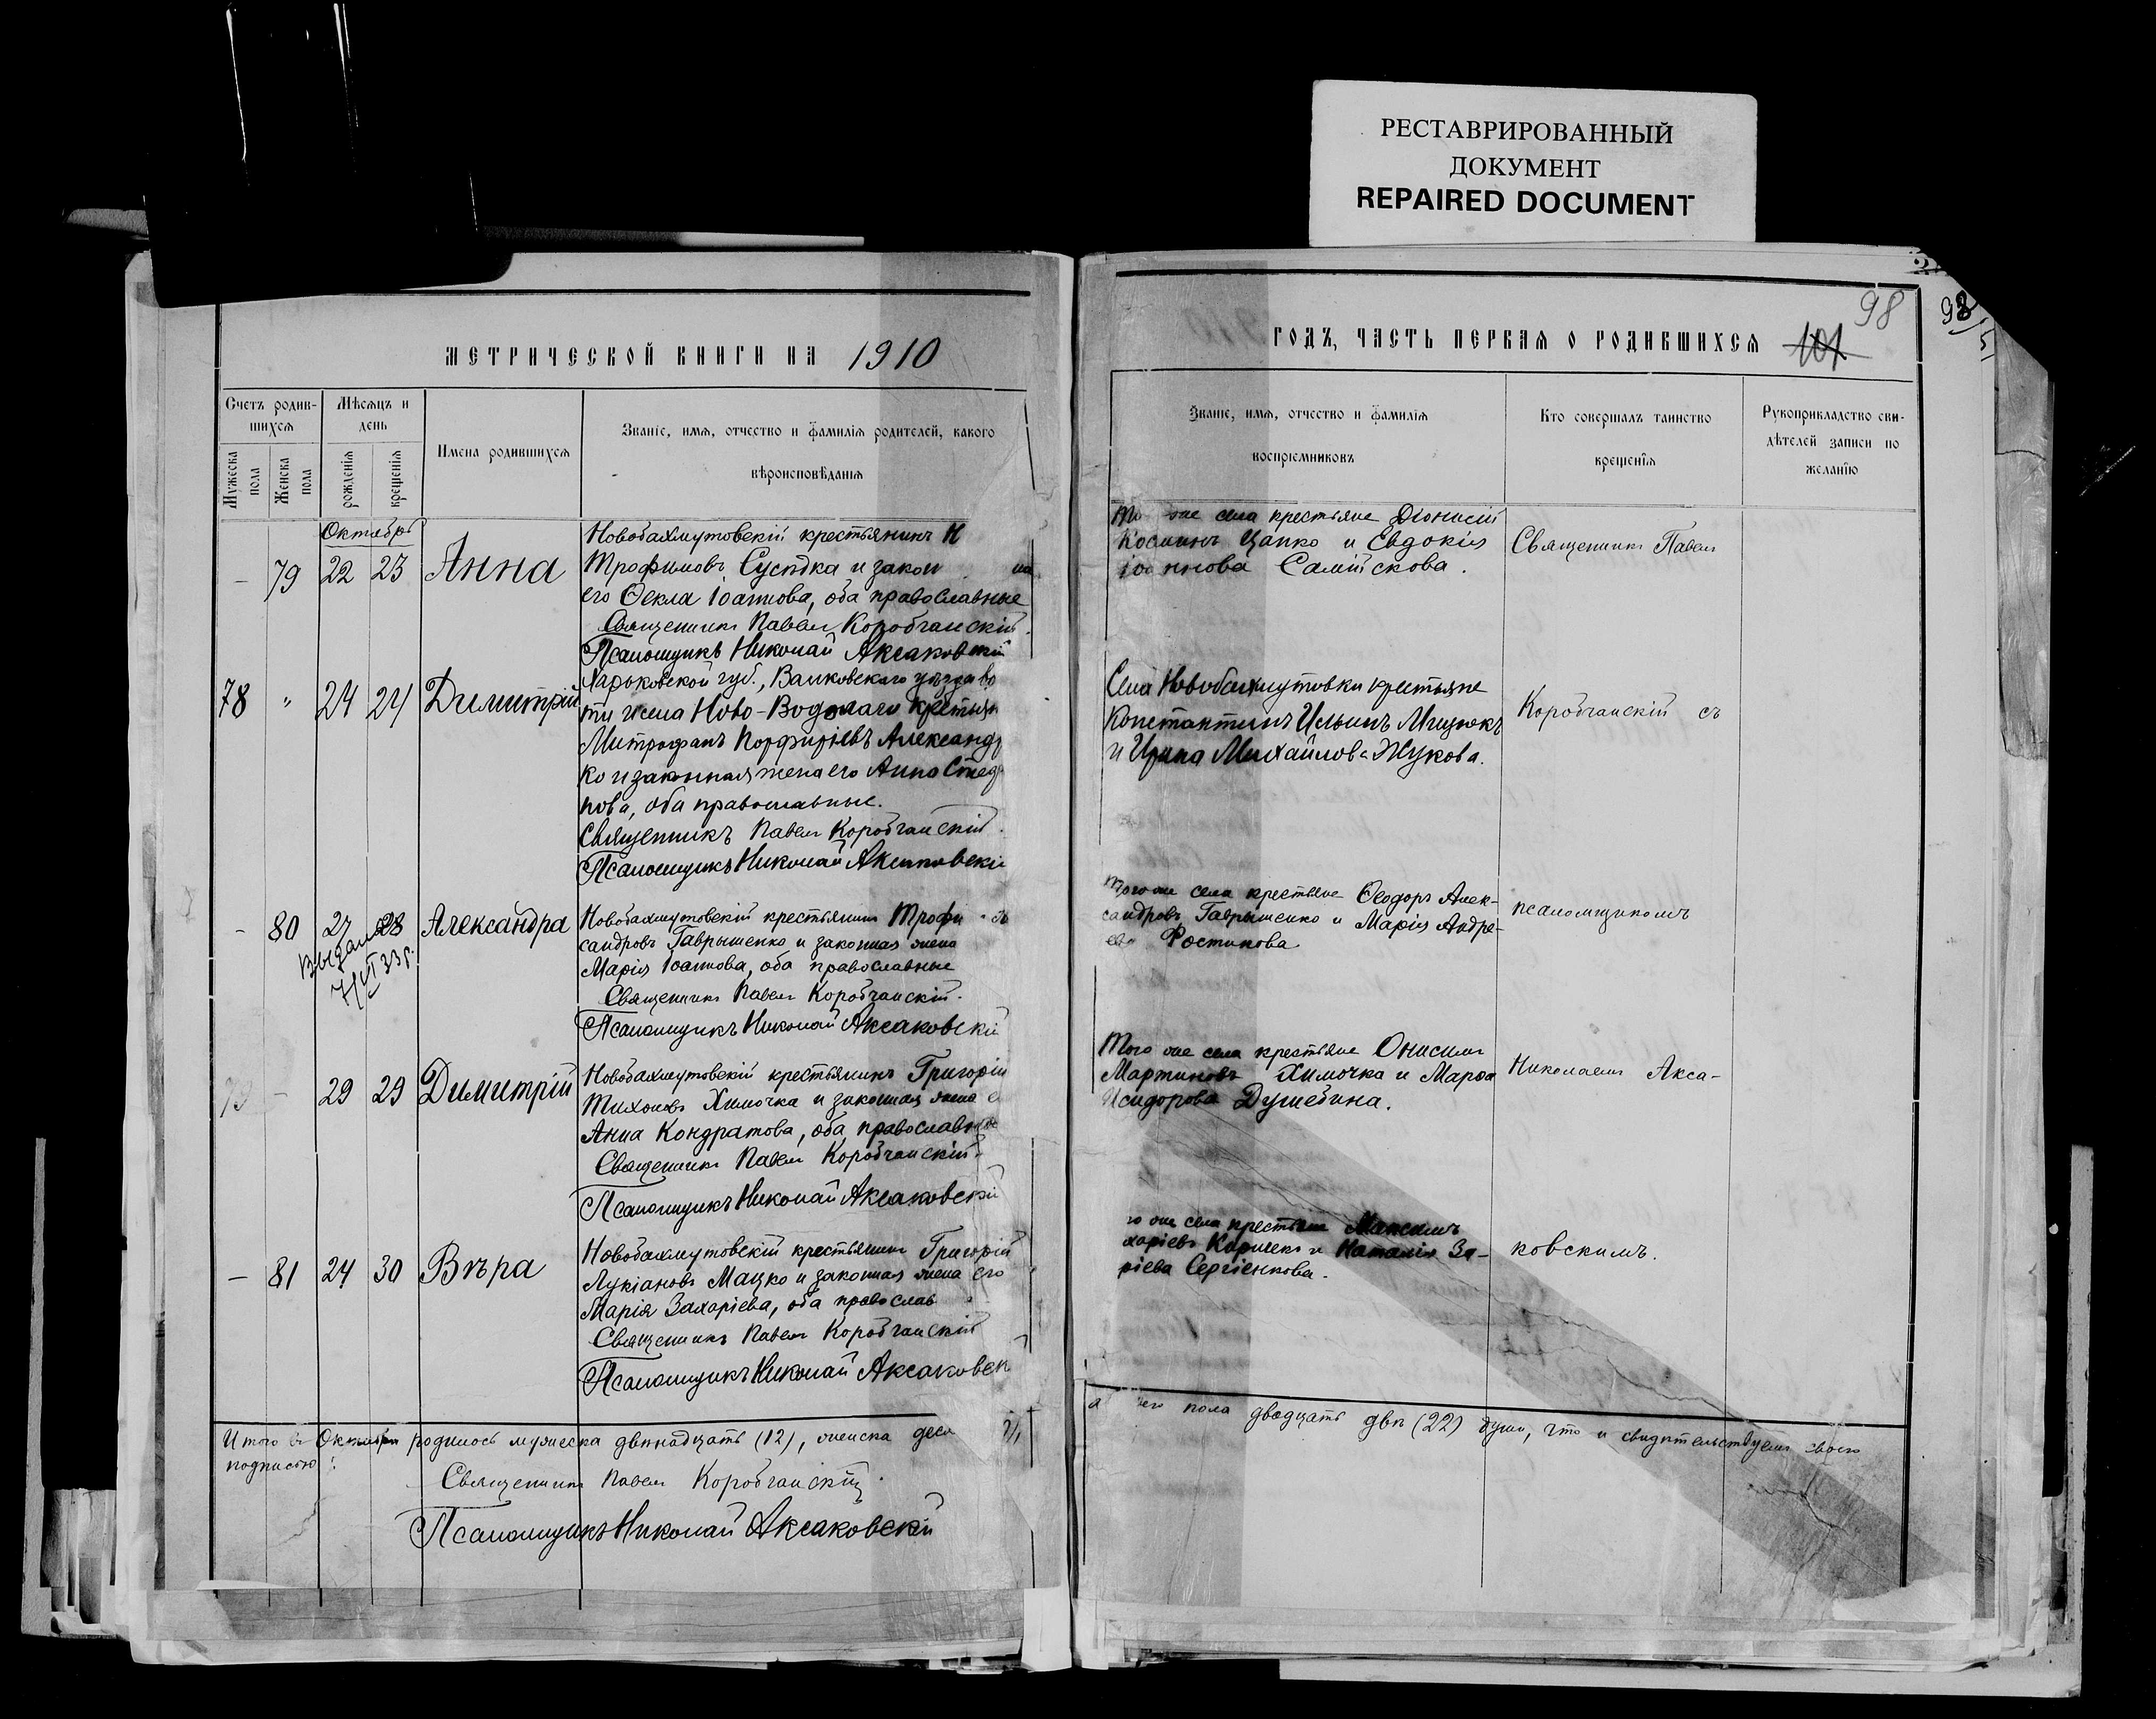 РЕСТАВРИРОВАННЫЙ
ДОКУМЕНТ
REPAIRED DOCUMENT
МЕТРИЧЕСКОЙ КНИГИ НА 1910
Счетъ родив-
шихся
Мѣсяцъ и
день
Мужеска
пола
Женска
пола
рожденія
крещенія
Имена родившихся
Званіе, имя, отчество и фамилія родителей, какого
вѣроисповѣданія
Октябрь
- 79 22 23 Анна
Новобахмутовскій крестьянинъ Н
Трофимовъ Сусѣдка и закон на
его Ѳекла Іоаннова, оба православные
Священникъ Павелъ Коробчанскій.
Псаломщикъ Николай Аксаковскій
78 " 24 24 Димитрій
Харьковской губ., Валковскаго уѣзда во
ти и села Ново-Водолаги крестьян
Митрофанъ Порфиріевъ Александр
ко и законная жена его Анна
нова, оба православные.
Священникъ Павелъ Коробчанскій.
Псаломщикъ Николай Аксаковскій
- 80 27 28 Александра
Выдано
7/VI 33 г.
Новобахмутовскій крестьянинъ Трофи
сандровъ Гаврышенко и законная жена
Марія Іоаннова, оба православные
Священникъ Павелъ Коробчанскій.
Псаломщикъ Николай Аксаковскій
79 - 29 29 Димитрій
Новобахмутовскій крестьянинъ Григорій
Тихоновъ Химочка и законная жена е
Анна Кондратова, оба православные
Священникъ Павелъ Коробчанскій.
Псаломщикъ Николай Аксаковскій
- 81 24 30 Вѣра
Новобахмутовскій крестьянинъ Григорій
Лукіановъ Мацко и законная жена его
Марія Захаріева, оба православ
Священникъ Павелъ Коробчанскій
Псаломщикъ Николай Аксаковск
Итого въ Октябрѣ родилось мужеска двѣнадцать (12), женска деся
подписью:
Священникъ Павелъ Коробчанскій.
Псаломщикъ Николай Аксаковскій
98
98
ГОДЪ, ЧАСТЬ ПЕРВАЯ О РОДИВШИХСЯ 101
Званіе, имя, отчество и фамилія
воспріемниковъ
Кто совершалъ таинство
крещенія
Рукоприкладство сви-
дѣтелей записи по
желанію
То же села крестьяне Діонисій
Косминъ Цапко и Евдокія
Іоаннова Самійскова.
Священникъ Павелъ
Села Новобахмутовки крестьяне
Константинъ Ильинъ Мицюкъ
и Ирина Михайлова Жукова.
Коробчанскій съ
Того же села крестьяне Ѳеодоръ Алек-
сандровъ Гаврышенко и Марія Андре-
ева Фостикова
псаломщикомъ
Того же села крестьяне Онисимъ
Мартиновъ Химочка и Марѳа
Исидорова Душебина.
Николаемъ Акса-
го же села крестьяне Максимъ
харіевъ и Наталія За-
ріева Сергіенкова.
ковскимъ.
его пола двадцать двѣ (22) души, что и свидѣтельствуемъ своею